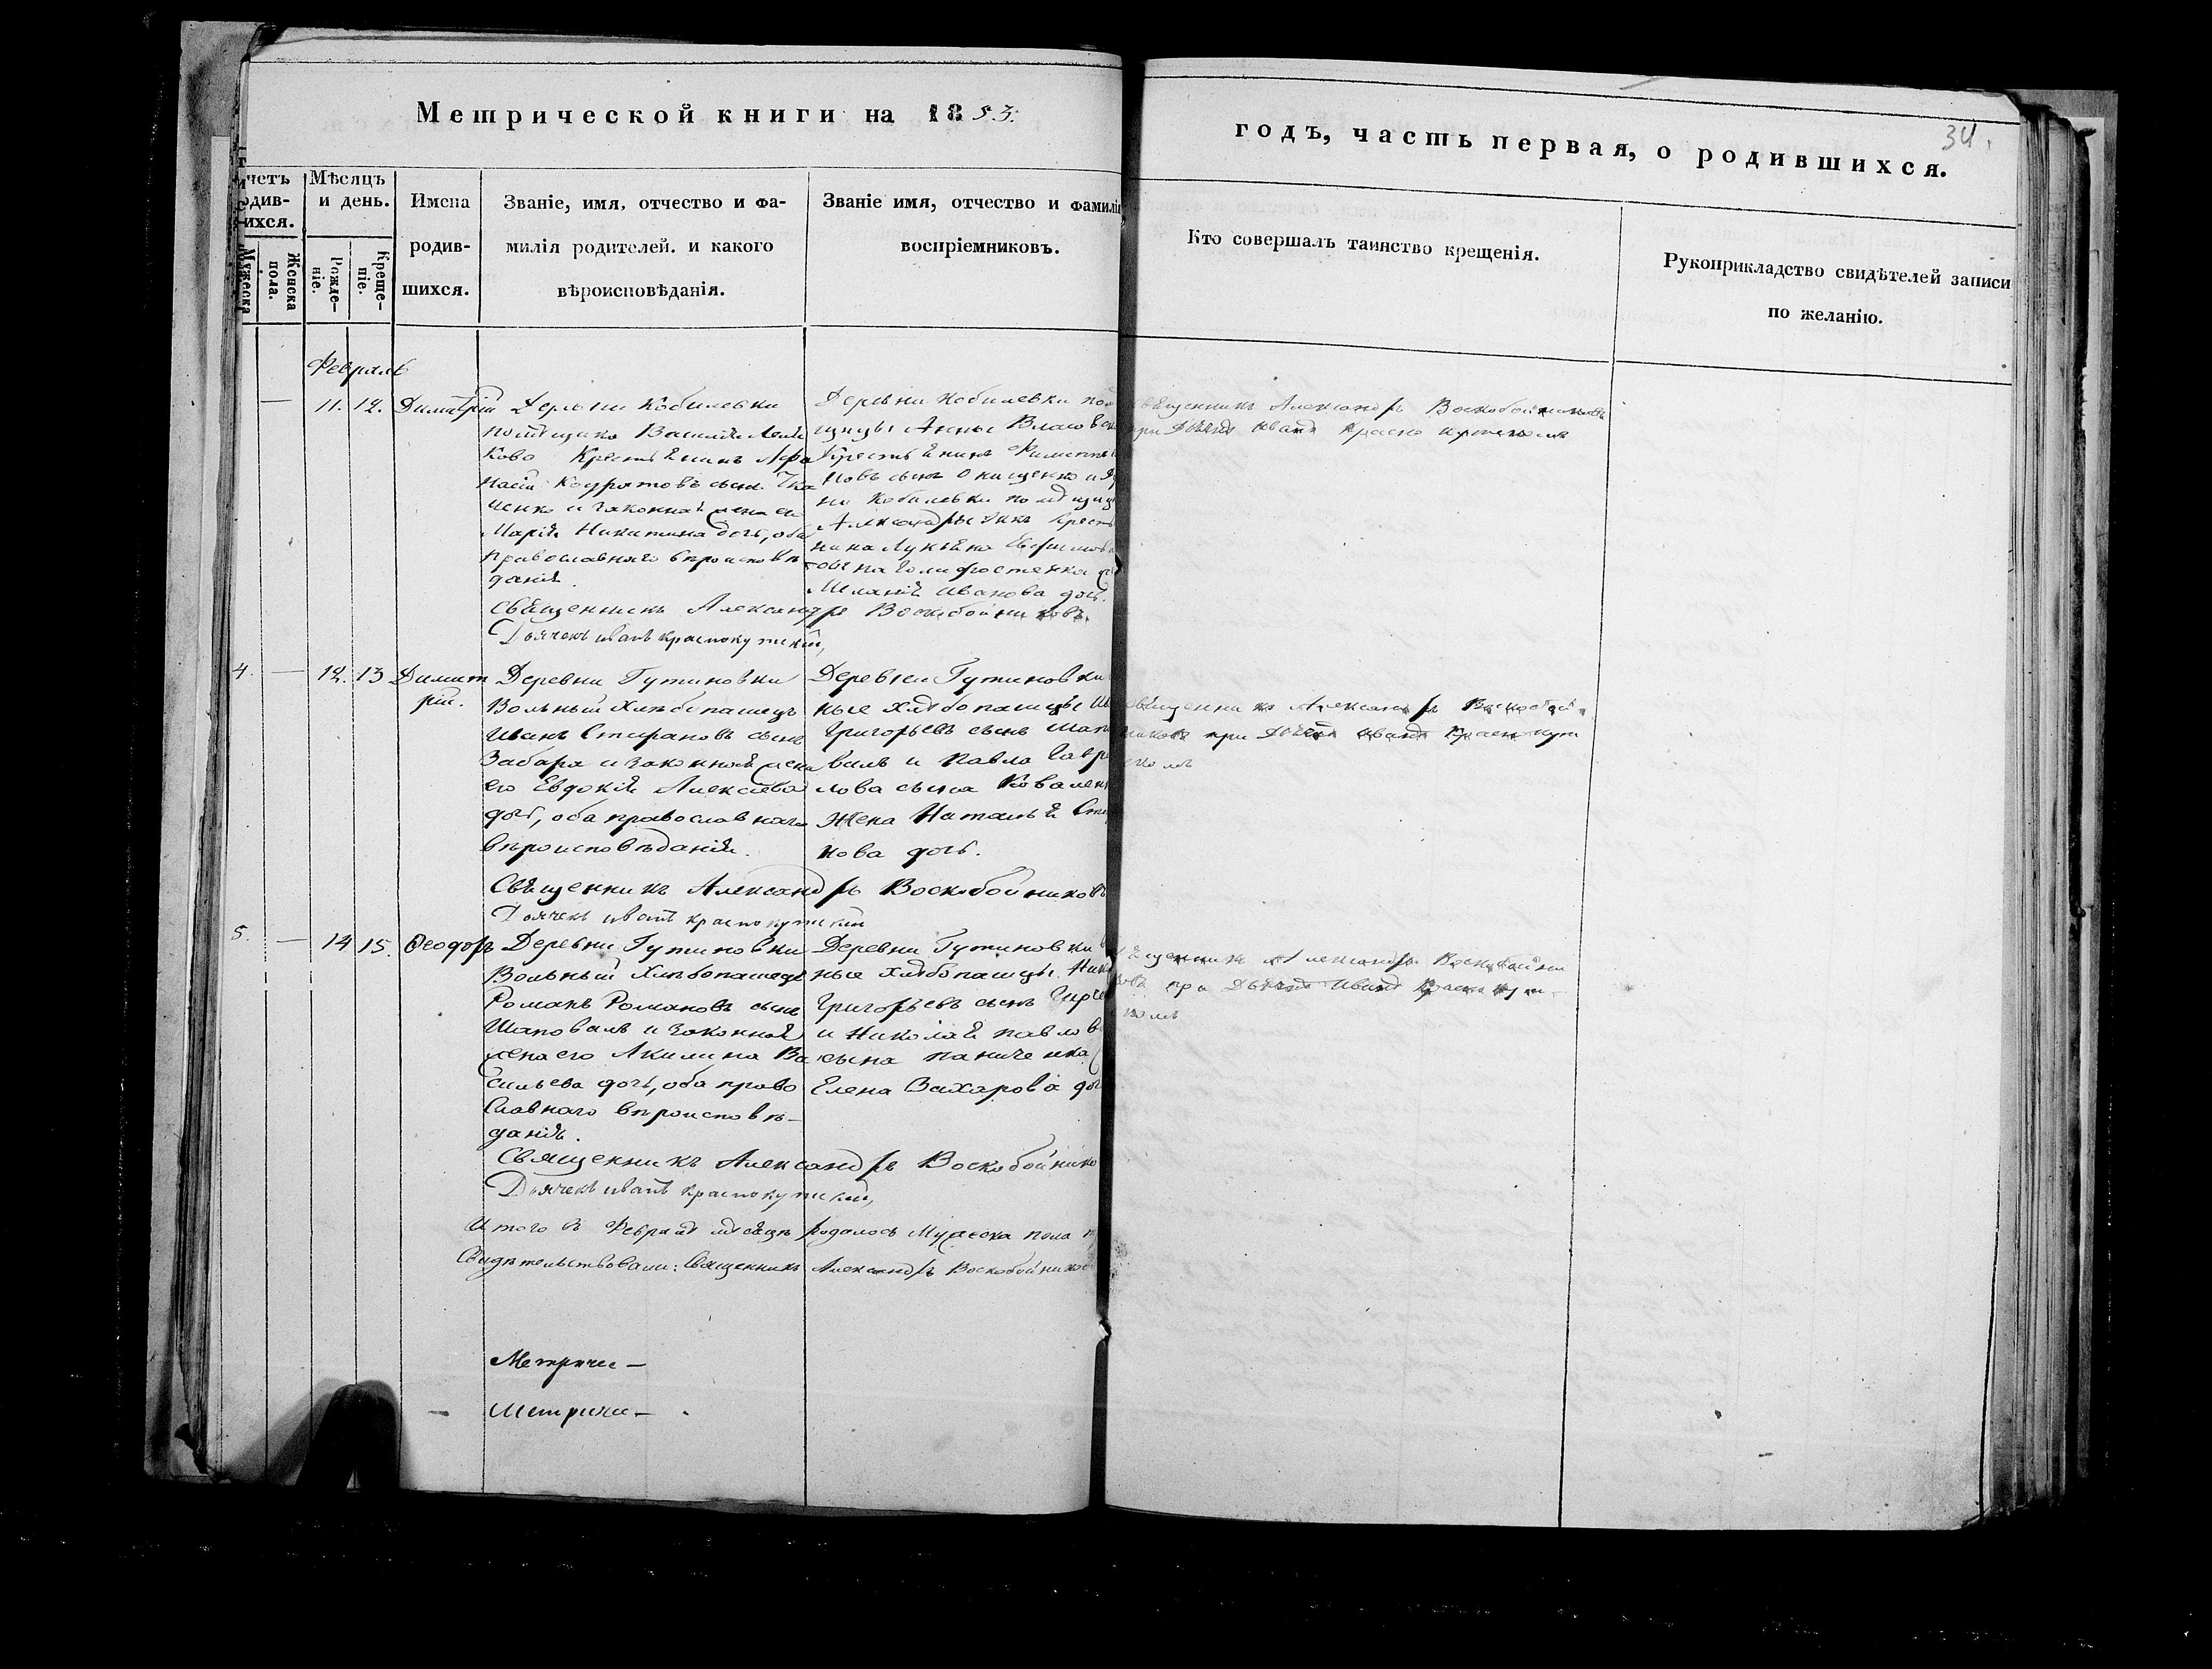 Метрической книги на 1853.
годъ, часть первая, о родившихся.
34.
Мѣсяцъ
и день.
Имена
родив-
шихся.
Званіе, имя, отчество и фа-
милія родителей. и какого
вѣроисповѣданія.
Званіе имя, отчество и фамилія
воспріемниковъ.
Кто совершалъ таинство крещенія.
Рукоприкладство свидѣтелей записи
по желанію.
четъ
одив-
ихся.
Мужеска
Женска
пола.
Рожде-
ніе.
Креще-
ніе.
Февраль
— 11. 12. Димитрій
Деревни Кобилевки
помѣщика Василія
Крестьянинъ Афа
насій Кодратовъ сынъ Тка
ченко и законная жена его
Марія Никитина дочь, оба
православнаго вѣроисповѣ
данія.
Деревни Кобилевки пом
щицы Анны
Крестьянинъ Филиппъ
новъ сынъ Онищенко и де
ни Кобилевки помѣщиц
Александры крестья
нина Лукьяна Евфимова
сына
Меланія Иванова дочь.
Священникъ Александръ Воскобойниковъ
при Дьячкѣ Иванѣ Краснокутскомъ
Священникъ Александръ Воскобойниковъ.
Дьячекъ Иванъ Краснокутскій,
4. — 12. 13 Димит
рій.
Деревни Гутиновки
Вольный хлѣбопашецъ
Иванъ Стефановъ сынъ
Забара и законная жена
его Евдокія Алексѣева
дочь, оба православнаго
вѣроисповѣданія.
Деревни Гутиновки
ные хлѣбопашцы Ив
Григорьевъ сынъ Шапо
валъ и Павла Гаври
лова сына Ковален
жена Наталья Сте
нова дочь.
Священникъ Александръ Воскобой
никовъ при Дьячкѣ Иванѣ Краснокут
скомъ
Священникъ Александръ Воскобойниковъ
Дьячекъ Иванъ Краснокутскій
5. — 14 15. Ѳеодоръ
Деревни Гутиновки
Вольный хлѣбопашецъ
Романъ Романовъ сынъ
Шаповалъ и законная
жена его Акилина Ва
сильева дочь, оба право
славнаго вѣроисповѣ-
данія.
Деревни Гутиновки в
ные хлѣбопашцы. Ник
Григорьевъ сынъ
и Николая Павлов
сына Паниченка
Елена Захарова доч
Священникъ Александръ Воскобойни
ковъ при Дьячкѣ Иванѣ Краснокут
скомъ
Священникъ Александръ Воскобойнико
Дьячекъ Иванъ Краснокутскій,
Итого въ Февралѣ мѣсяцѣ родалось Мужеска пола
Свидѣтельствовали: Священникъ Александръ Воскобойников
Метриче—
Метриче—